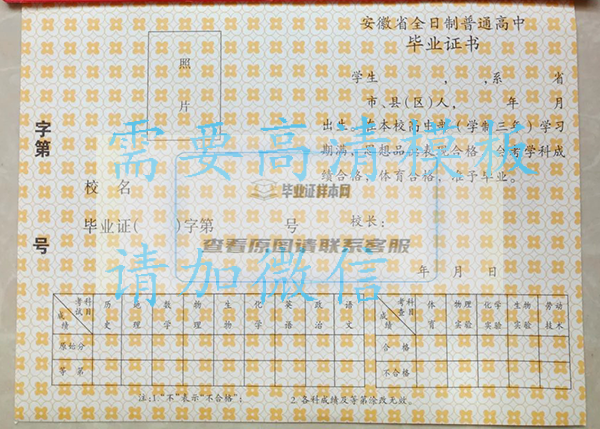 安徽省全日制普通高中
毕业证书
照
片
学生 , ,系 省
市、县(区)人, 年 月
出生。在本校高中部(学制三年)学习
期满,思想品德表现合格,会考学科成
绩合格,体育合格,准予毕业。
字第
号
校 名
毕业证( )字第 号
校长:
年 月 日
需要高清模板
请加微信
毕业证样本网
查看原图请联系客服
考试科目 成绩 历史 地理 数学 物理 生物 化学 英语 政治 语文
原始分
等 第
考查科目 成绩 体育 物理实验 化学实验 生物实验 劳动技术
合 格
不合格
注:1.“不”表示“不合格”; 2.各科成绩及等第涂改无效。